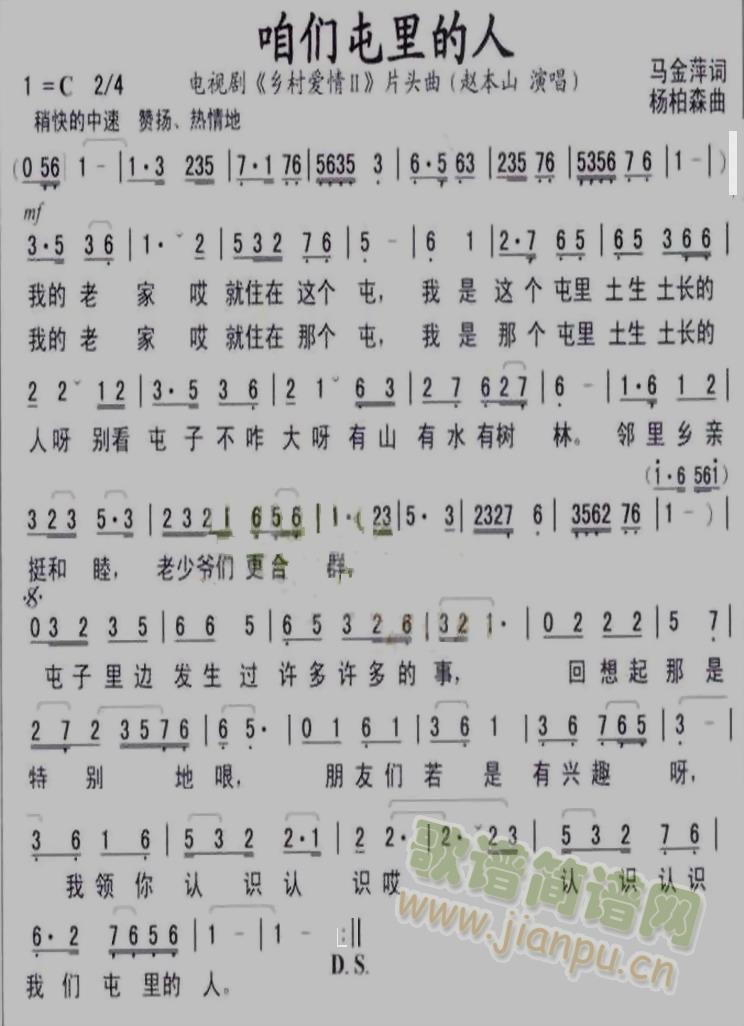 咱们屯里的人
1=C 2/4 电视剧《乡村爱情II》片头曲(赵本山 演唱) 马金萍词
杨柏森曲
稍快的中速 赞扬、热情地
(0 56 | 1 - | 1·3 235 | 7·1 76 | 5635 3 | 6·5 63 | 235 76 | 5356 76 | 1 - |)
mf
3·5 36 | 1·ˇ 2 | 532 76 | 5 - | 6 1 | 2·7 65 | 65 366 |
我的 老 家 哎 就住在 这个 屯, 我 是 这 个 屯里 土生 土长的
我的 老 家 哎 就住在 那个 屯, 我 是 那 个 屯里 土生 土长的
2 2ˇ 12 | 3·5 36 | 2 1ˇ 63 | 27 627 | 6 - | 1·6 12 |
人呀 别看 屯 子 不 咋 大 呀 有 山 有 水 有树 林。 邻 里 乡 亲
(i·6 56i)
323 5·3 | 2321 656 | 1·( 23 | 5· 3 | 2327 6 | 3562 76 | 1 - ) |
挺和 睦, 老少爷们 更合 群。
03 23 35 | 66 5 | 65 326 | 32 1· | 02 22 | 5 7 |
屯 子 里 边 发 生 过 许 多 许 多 的 事, 回 想 起 那 是
27 2 3576 | 6 5· | 01 61 | 36 1 | 36 765 | 3 - |
特 别 地 哏, 朋 友 们 若 是 有 兴 趣 呀,
3 6 | 1 6 | 532 2·1 | 2 2· | 2· 23 | 532 76 |
我 领 你 认 识 认 识 哎 认 识 认 识
6·2 7656 | 1 - | 1 - :||
D.S.
我 们 屯 里 的 人。
歌谱简谱网
www.jianpu.cn